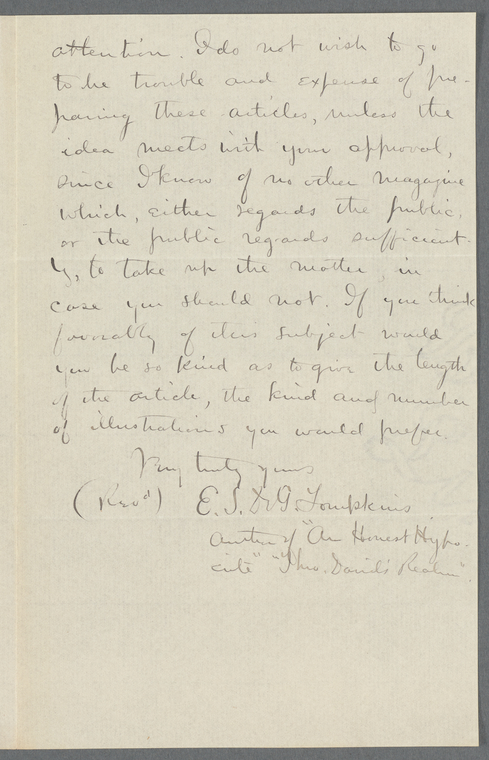 attention. I do not wish to go
to he trouble and expense of pre-
paring these articles, unless the
idea meets with your approval,
since I know of no other magazine
which, either regards the public,
or the public regards sufficient-
ly, to take up the matter, in
case you should not. If you think
favorably of this subject would
you be so kind as to give the length
of the article, the kind and number
of illustrations you would prefer.
Very truly yours
(Revd) E. S. De G. Tompkins
author of "An Honest Hypo-
crite" "Thro. David's Realm".